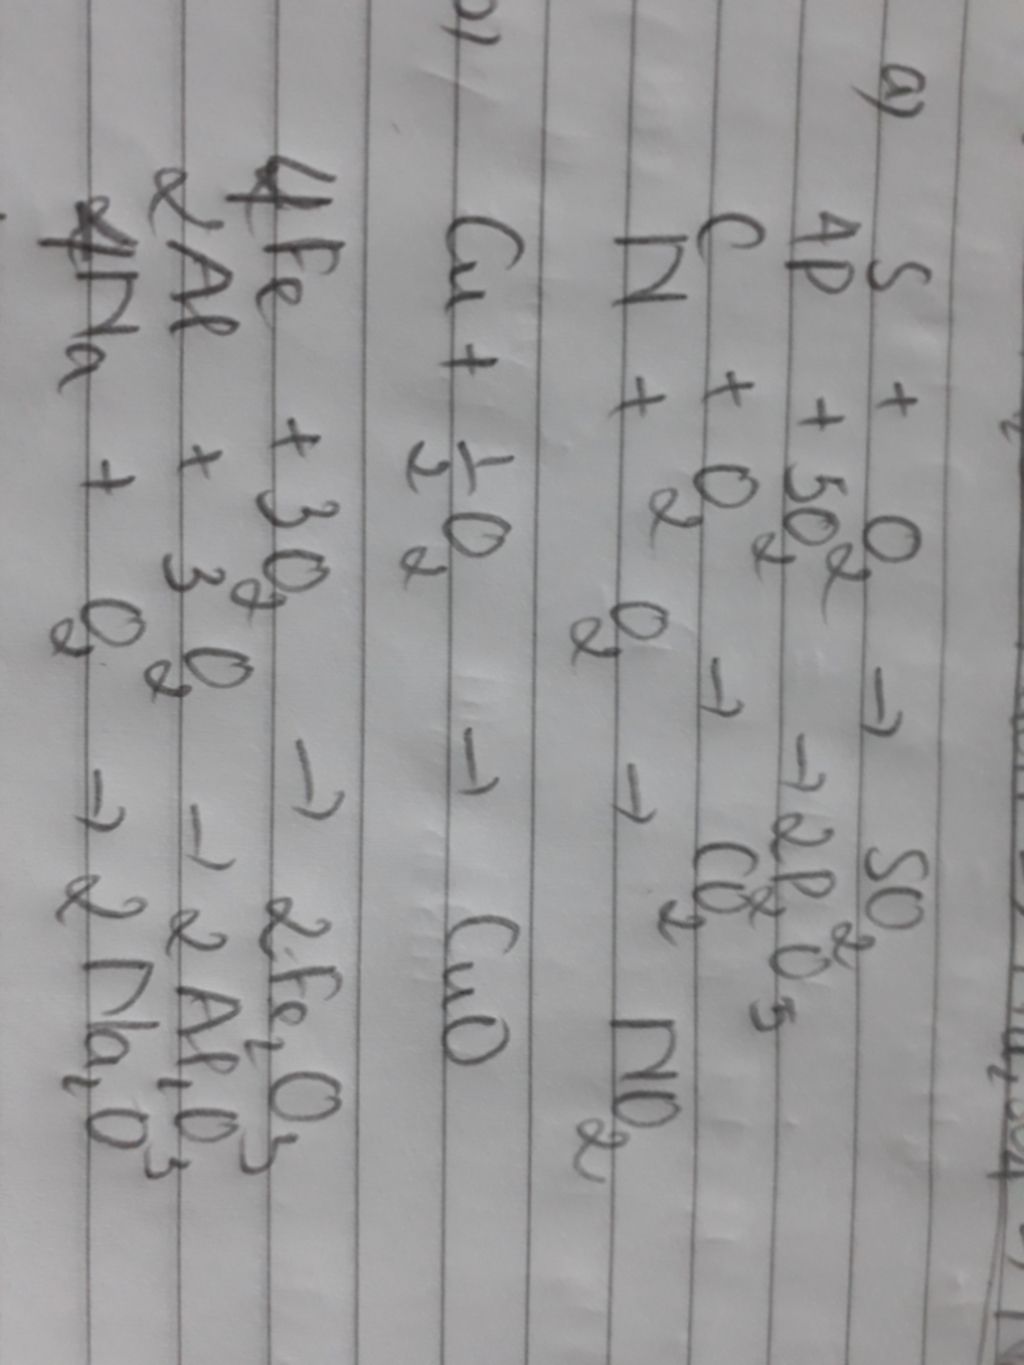 a) S + O₂ → SO₂
4P + 5O₂ → 2P₂O₅
C + O₂ → CO₂
N + O₂ → NO₂
b) Cu + 1/2 O₂ → CuO
4Fe + 3O₂ → 2Fe₂O₃
2Al + 3O₂ → 2Al₂O₃
4Na + O₂ → 2Na₂O